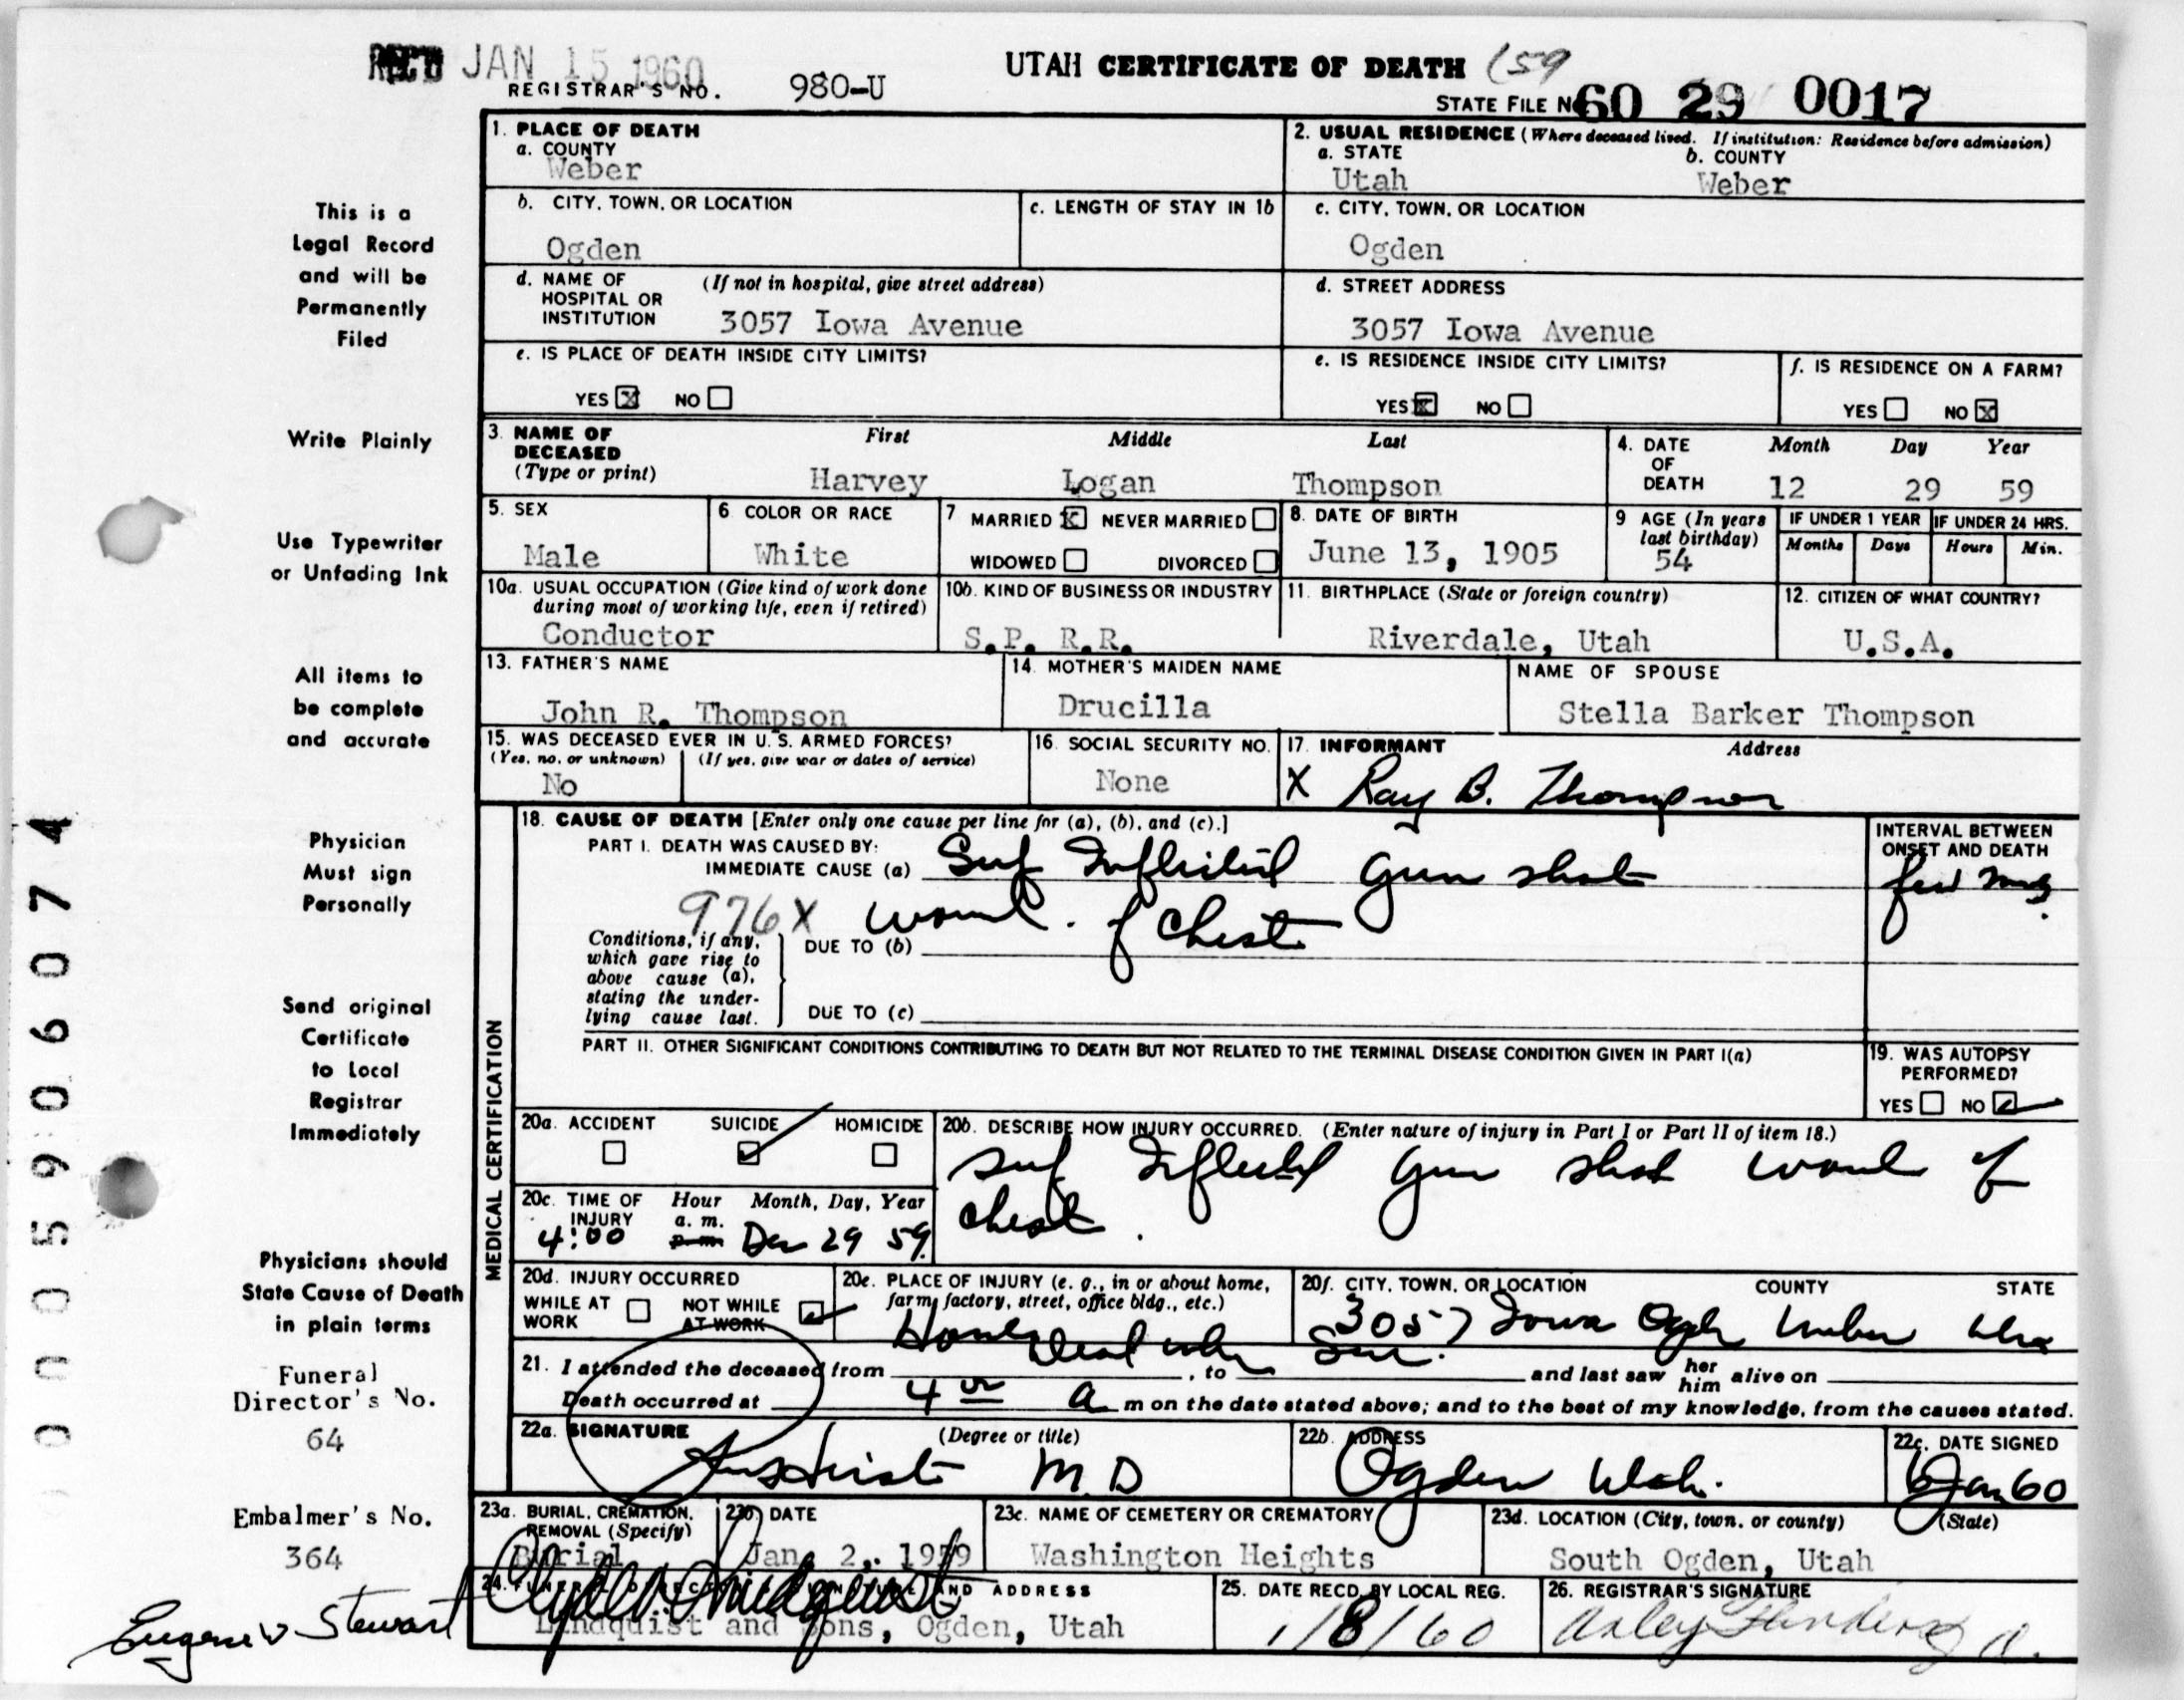 REC'D JAN 15 1960
UTAH CERTIFICATE OF DEATH
REGISTRAR'S NO. 980-U
STATE FILE No 60 29 0017
This is a
Legal Record
and will be
Permanently
Filed
Write Plainly
Use Typewriter
or Unfading Ink
All items to
be complete
and accurate
Physician
Must sign
Personally
Send original
Certificate
to Local
Registrar
Immediately
Physicians should
State Cause of Death
in plain terms
Funeral
Director's No.
64
Embalmer's No.
364
Stewart
0005906074
1. PLACE OF DEATH
a. COUNTY
Weber
2. USUAL RESIDENCE (Where deceased lived. If institution: Residence before admission)
a. STATE b. COUNTY
Utah Weber
b. CITY, TOWN, OR LOCATION
Ogden
c. LENGTH OF STAY IN 1b
c. CITY, TOWN, OR LOCATION
Ogden
d. NAME OF (If not in hospital, give street address)
HOSPITAL OR
INSTITUTION 3057 Iowa Avenue
d. STREET ADDRESS
3057 Iowa Avenue
e. IS PLACE OF DEATH INSIDE CITY LIMITS?
YES X NO
e. IS RESIDENCE INSIDE CITY LIMITS?
YES X NO
f. IS RESIDENCE ON A FARM?
YES NO X
3. NAME OF First Middle Last
DECEASED
(Type or print) Harvey Logan Thompson
4. DATE Month Day Year
OF
DEATH 12 29 59
5. SEX
Male
6 COLOR OR RACE
White
7 MARRIED X NEVER MARRIED
WIDOWED DIVORCED
8. DATE OF BIRTH
June 13, 1905
9 AGE (In years
last birthday)
54
IF UNDER 1 YEAR IF UNDER 24 HRS.
Months Days Hours Min.
10a. USUAL OCCUPATION (Give kind of work done
during most of working life, even if retired)
Conductor
10b. KIND OF BUSINESS OR INDUSTRY
S.P. R.R.
11. BIRTHPLACE (State or foreign country)
Riverdale, Utah
12. CITIZEN OF WHAT COUNTRY?
U.S.A.
13. FATHER'S NAME
John R. Thompson
14. MOTHER'S MAIDEN NAME
Drucilla
NAME OF SPOUSE
Stella Barker Thompson
15. WAS DECEASED EVER IN U.S. ARMED FORCES?
(Yes, no, or unknown) (If yes, give war or dates of service)
No
16. SOCIAL SECURITY NO.
None
17. INFORMANT Address
X Ray B. Thompson
MEDICAL CERTIFICATION
18. CAUSE OF DEATH [Enter only one cause per line for (a), (b), and (c).]
PART I. DEATH WAS CAUSED BY:
IMMEDIATE CAUSE (a) Self Inflicted Gun shot
976X wound of Chest
Conditions, if any,
which gave rise to
above cause (a),
stating the under-
lying cause last.
DUE TO (b)
DUE TO (c)
INTERVAL BETWEEN
ONSET AND DEATH
few
PART II. OTHER SIGNIFICANT CONDITIONS CONTRIBUTING TO DEATH BUT NOT RELATED TO THE TERMINAL DISEASE CONDITION GIVEN IN PART I(a)
19. WAS AUTOPSY
PERFORMED?
YES NO
20a. ACCIDENT SUICIDE HOMICIDE
20b. DESCRIBE HOW INJURY OCCURRED. (Enter nature of injury in Part I or Part II of item 18.)
Self Inflicted Gun shot wound of
chest.
20c. TIME OF Hour Month, Day, Year
INJURY a. m.
4:00 p. m. Dec 29 59
20d. INJURY OCCURRED
WHILE AT NOT WHILE
WORK AT WORK
20e. PLACE OF INJURY (e. g., in or about home,
farm, factory, street, office bldg., etc.)
Home
20f. CITY, TOWN, OR LOCATION COUNTY STATE
3057 Iowa Ogden Weber Utah
Dead when Seen.
21. I attended the deceased from , to and last saw her him alive on
Death occurred at 4 00 a m on the date stated above; and to the best of my knowledge, from the causes stated.
22a. SIGNATURE (Degree or title)
M.D
22b. ADDRESS
Ogden Utah.
22c. DATE SIGNED
6 Jan 60
23a. BURIAL, CREMATION,
REMOVAL (Specify)
Burial
23b. DATE
Jan. 2, 1959
23c. NAME OF CEMETERY OR CREMATORY
Washington Heights
23d. LOCATION (City, town, or county) (State)
South Ogden, Utah
24. AND ADDRESS
Lindquist and Sons, Ogden, Utah
25. DATE RECD. BY LOCAL REG.
1/8/60
26. REGISTRAR'S SIGNATURE